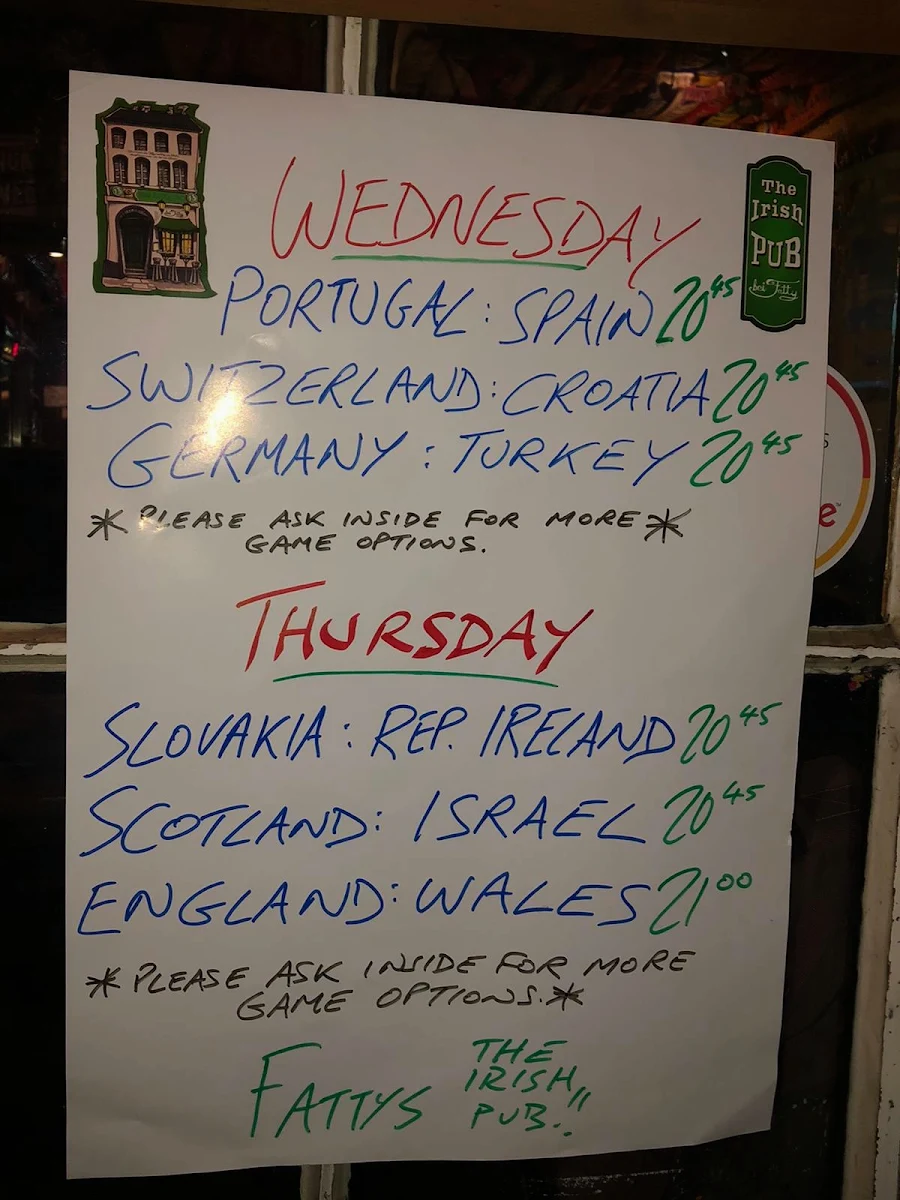 WEDNESDAY
The
Irish
PUB
bei Fatty
PORTUGAL : SPAIN 20 45
SWITZERLAND : CROATIA 20 45
GERMANY : TURKEY 20 45
* PLEASE ASK INSIDE FOR MORE *
GAME OPTIONS.
THURSDAY
SLOVAKIA : REP. IRELAND 20 45
SCOTLAND : ISRAEL 20 45
ENGLAND : WALES 21 00
* PLEASE ASK INSIDE FOR MORE
GAME OPTIONS. *
FATTYS THE
IRISH
PUB!!